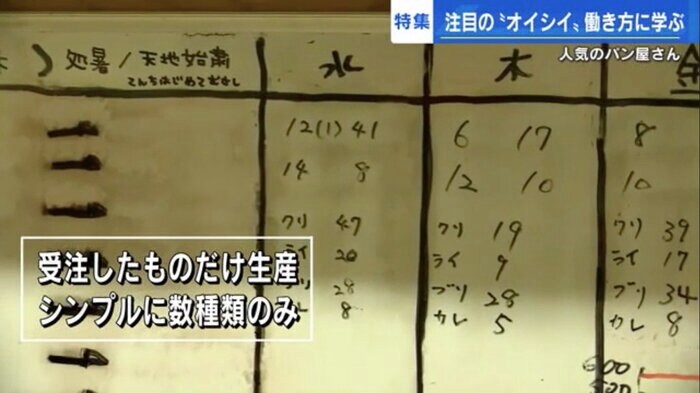 特集
注目の〝オイシイ〟働き方に学ぶ
人気のパン屋さん
処暑/天地始粛
てんちはじめてさむし
水 木 金
12(1) 41 6 17 8
14 8 12 10 10
クリ 47 クリ 19 クリ 39
ライ 20 ライ 9 ライ 17
28 ブリ 28 ブリ 34
8 カレ 5 カレ 8
600
受注したものだけ生産
シンプルに数種類のみ